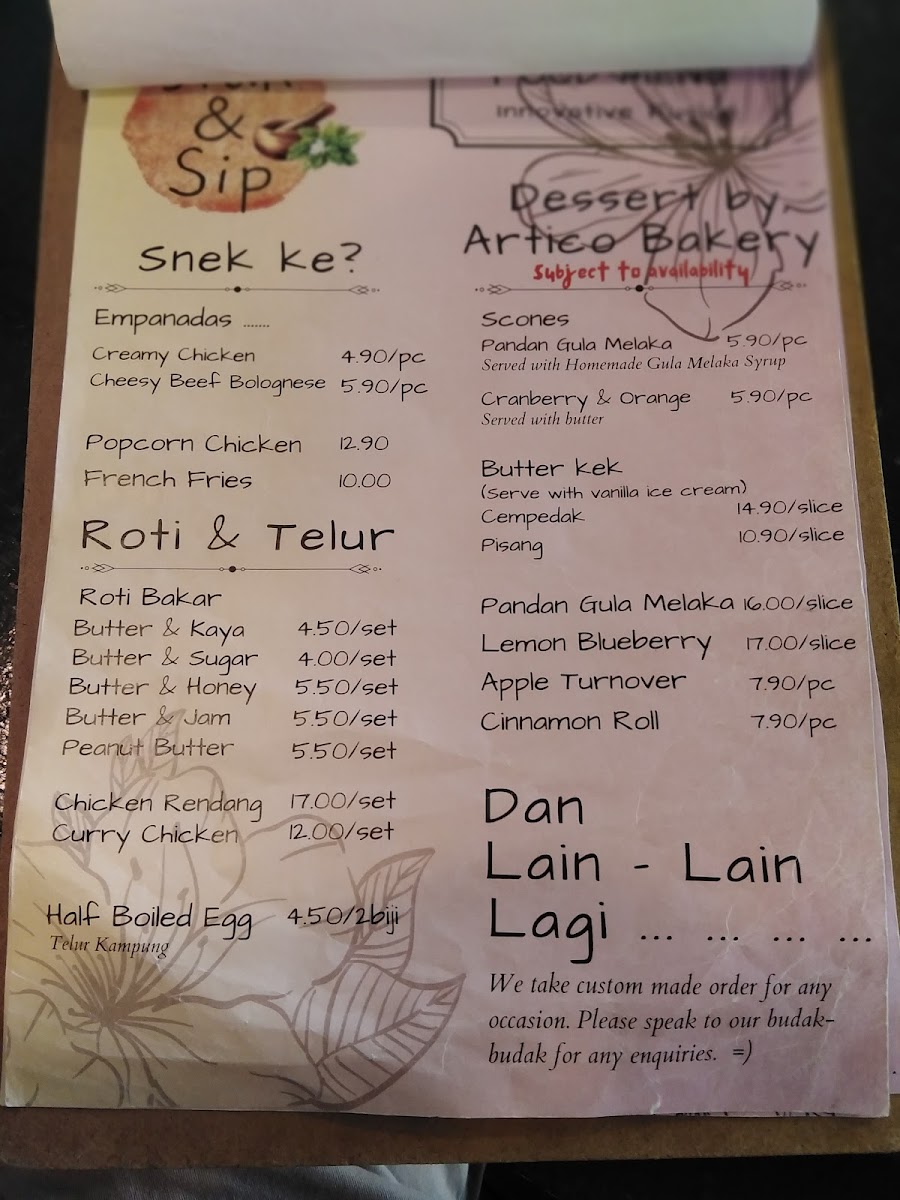 &
Sip
Snek ke?
Empanadas .......
Creamy Chicken 4.90/pc
Cheesy Beef Bolognese 5.90/pc
Popcorn Chicken 12.90
French Fries 10.00
Roti & Telur
Roti Bakar
Butter & Kaya 4.50/set
Butter & Sugar 4.00/set
Butter & Honey 5.50/set
Butter & Jam 5.50/set
Peanut Butter 5.50/set
Chicken Rendang 17.00/set
Curry Chicken 12.00/set
Half Boiled Egg 4.50/2biji
Telur Kampung
Innovative
Dessert by
Artico Bakery
Subject to availability
Scones
Pandan Gula Melaka 5.90/pc
Served with Homemade Gula Melaka Syrup
Cranberry & Orange 5.90/pc
Served with butter
Butter kek
(Serve with vanilla ice cream)
Cempedak 14.90/slice
Pisang 10.90/slice
Pandan Gula Melaka 16.00/slice
Lemon Blueberry 17.00/slice
Apple Turnover 7.90/pc
Cinnamon Roll 7.90/pc
Dan
Lain - Lain
Lagi ... ... ... ...
We take custom made order for any
occasion. Please speak to our budak-
budak for any enquiries. =)